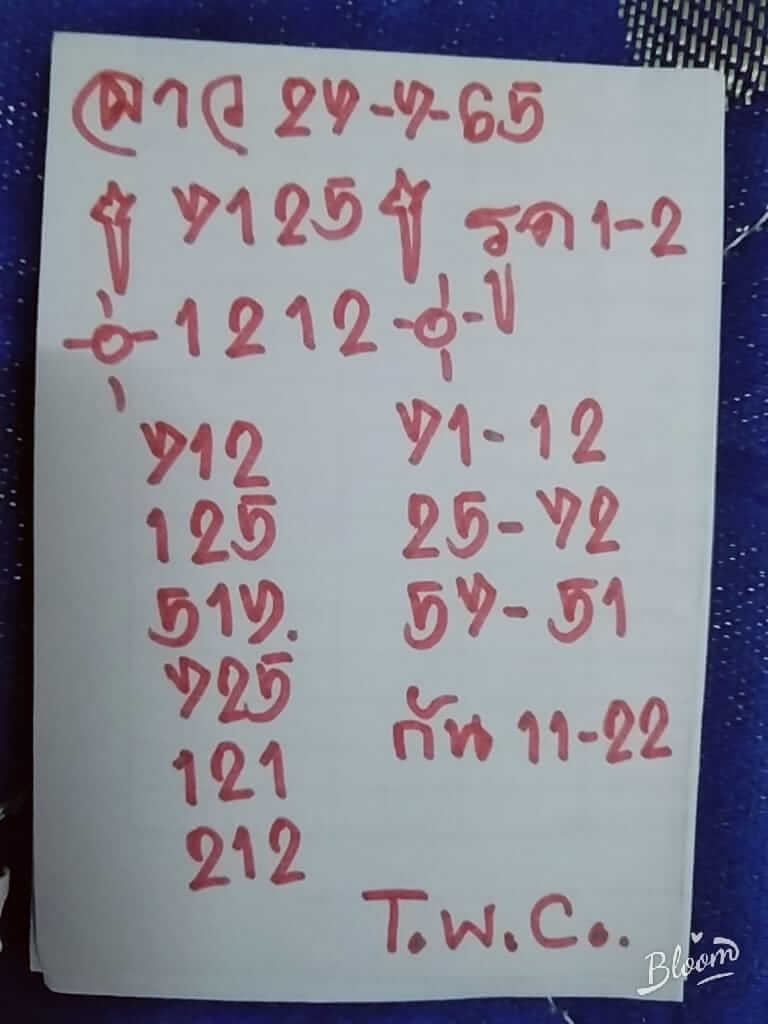 ลาว 27-7-65
7125 รูด 1-2
1212 -ปู
712 71-12
125 25-72
517. 57-51
725
กัน 11-22
121
212
T.W.C..
Bloom